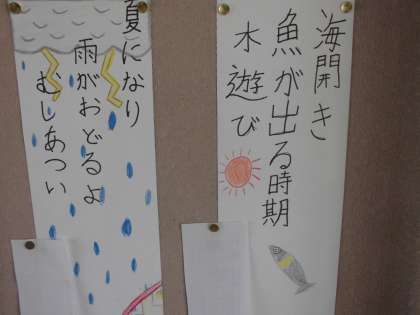 海開き
魚が出る時期
水遊び
夏になり
雨がおどるよ
むしあつい